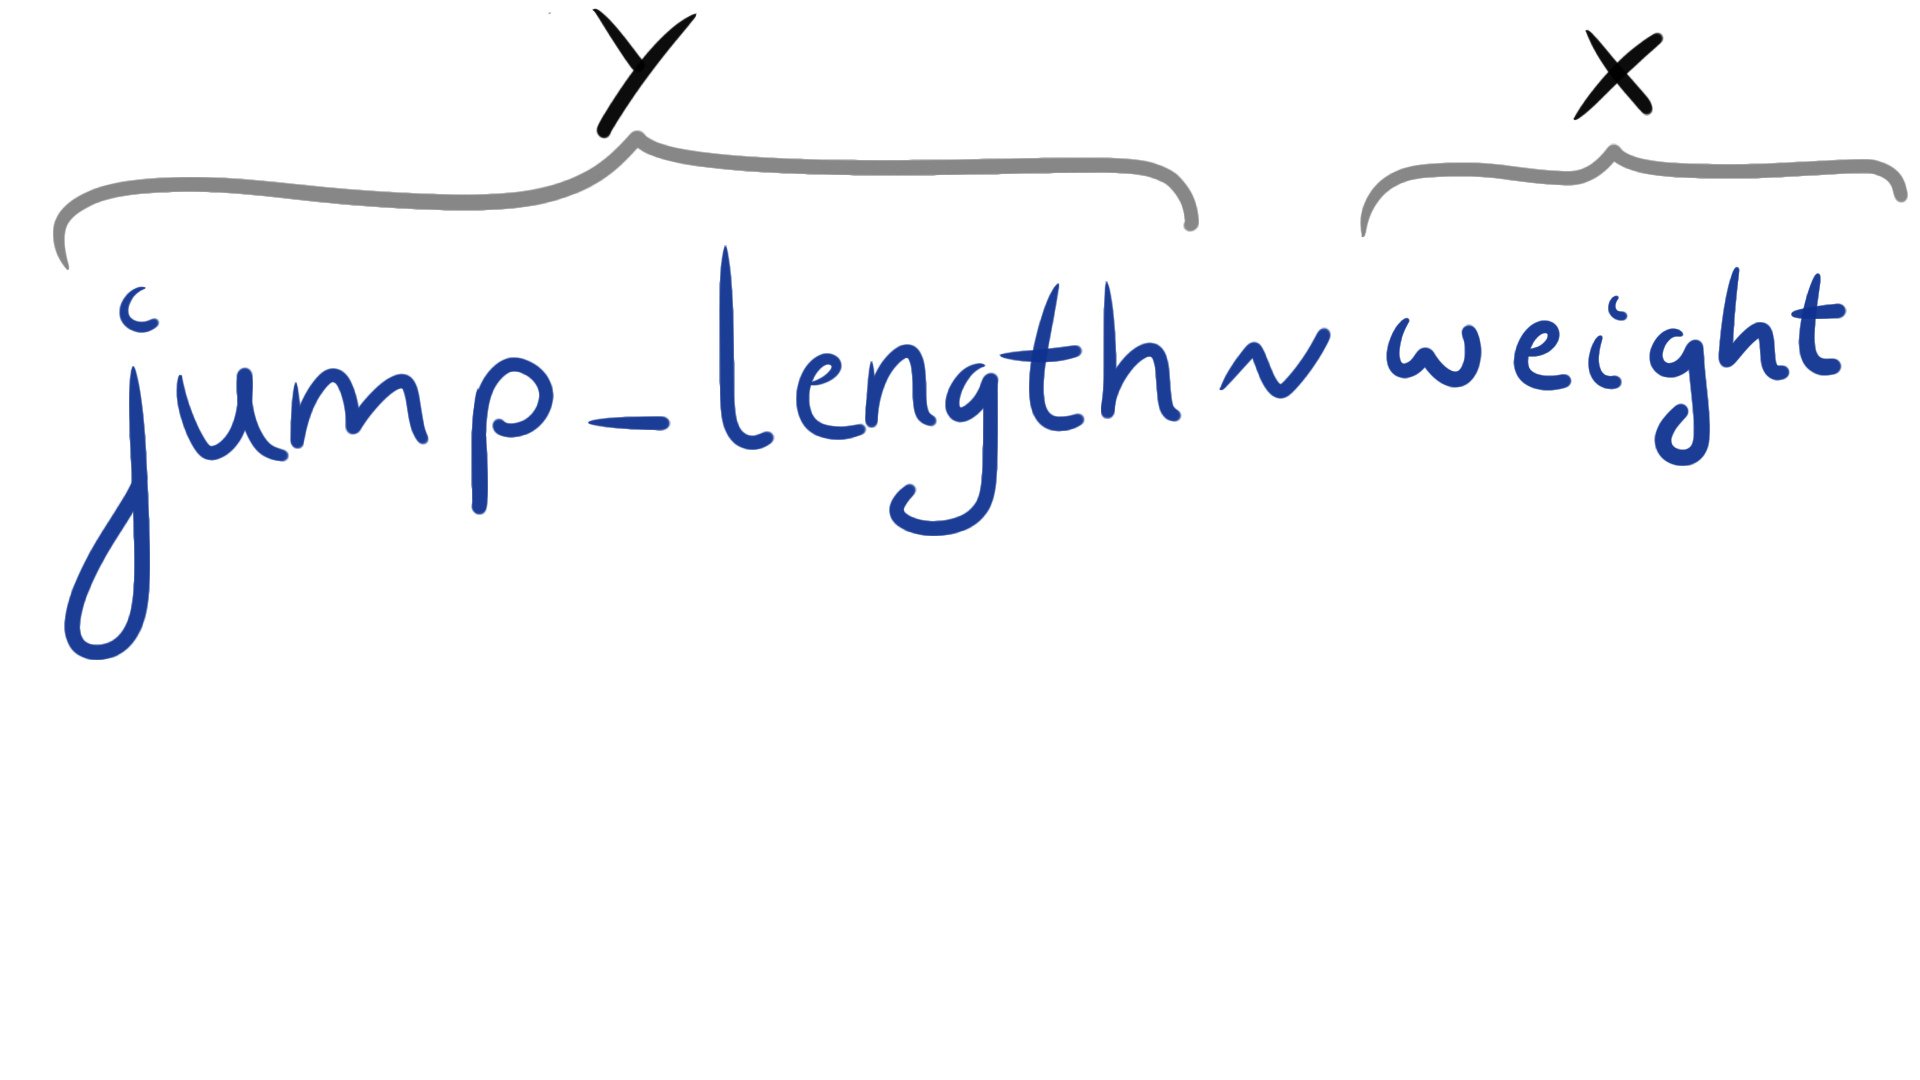 Y X
jump_length ~ weight